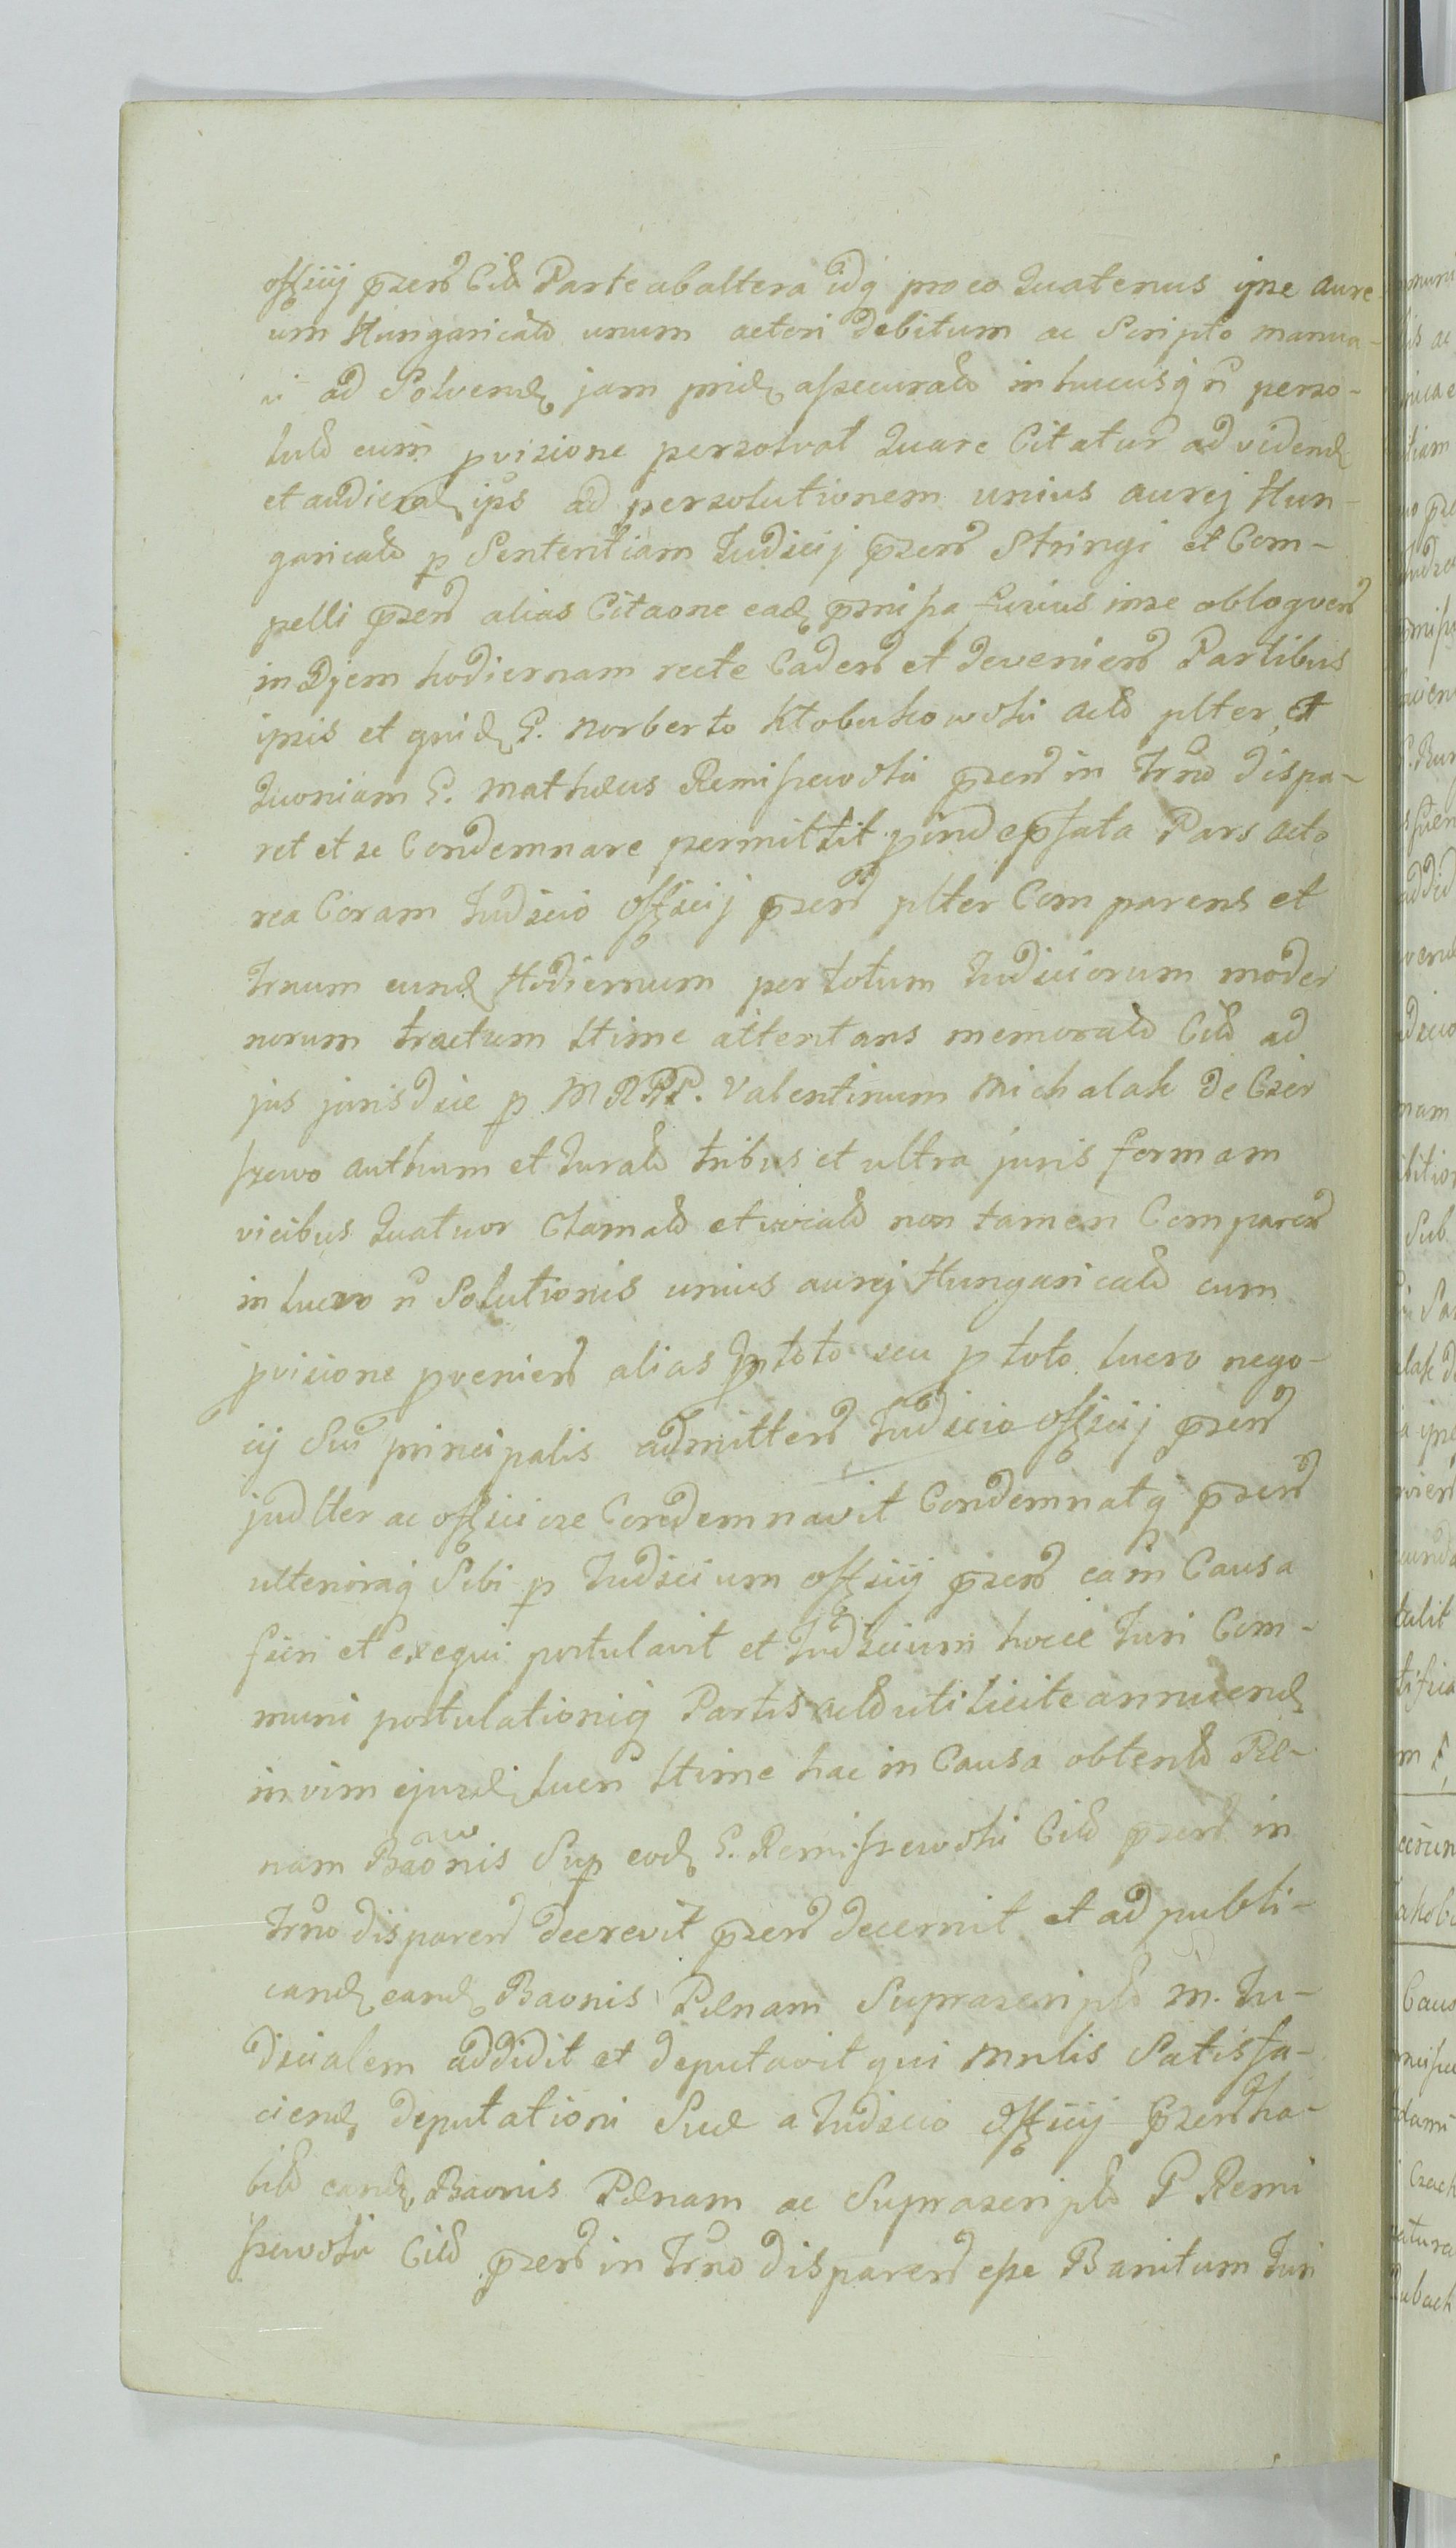 officij przens Citt Parte ab altera idq pro eo Quatenus ipse aure-
um Hungaricald unum actori debitum ac Scripto manua-
li ad Solvend jam prid assecurald in hucusq n perso-
lutd cum pvisione persolvat Quare Citatur ad vidend
et audiend ips ad persolutionem unius aurej Hun-
garicald p Sententiam Judicij przens Stringi et Com-
pelli przens alias Citaone ead prmissa furius in se obloqven
in Djem hodiernam recte Cadens et deveniens Partibus
ipsis et quid G. Norberto Kłobukowski actd plter, et
Quoniam G. Mathæus Remiszewski przens in Trno dispa-
ret et se Condemnare permittit pinde pftata Pars acto
rea Coram Judicio Officij przens plter Comparens et
Trnum eund Hodiernum per totum Judiciorum moder
norum tractum ltime attentans memorald Citd ad
jus jurisdice p MRPP. Valentinum Michalak de Czer
szewo authum et Jurald tribus et ultra juris formam
vicibus Quatuor Clamald et vocald non tamen Comparen
in lucro n Solutionis unius aurej Hungaricald cum
pvisione pveniens alias in toto seu p toto lucro nego-
ij Sui principalis admittens Judicio Officij przens
judlter ac officiose Condemnavit Condemnatq przens
ulterioraq Sibi p Judicium officij przens eam Causa
fieri et exequi postulavit et Judicium hocce Juri Com-
muni postulationiq Partis actd uti licite annuend
in vim ejusd lucri ltime hac in Causa obtentd Pæ-
nam Baonis Sup eod G. Remiszewski Citd przens in
Trno disparen decrevit przens decernit et ad publi-
cand eand Baonis Pænam Suprascriptd M. Ju-
dicialem addidit et deputavit qui mnlis Satisfa-
ciend deputationi Suæ a Judicio officij przens ha-
bitd eand Baonis Pænam ac Suprascriptd G Remi
szewski Citd przens in Trno disparens esse Banitum Juri